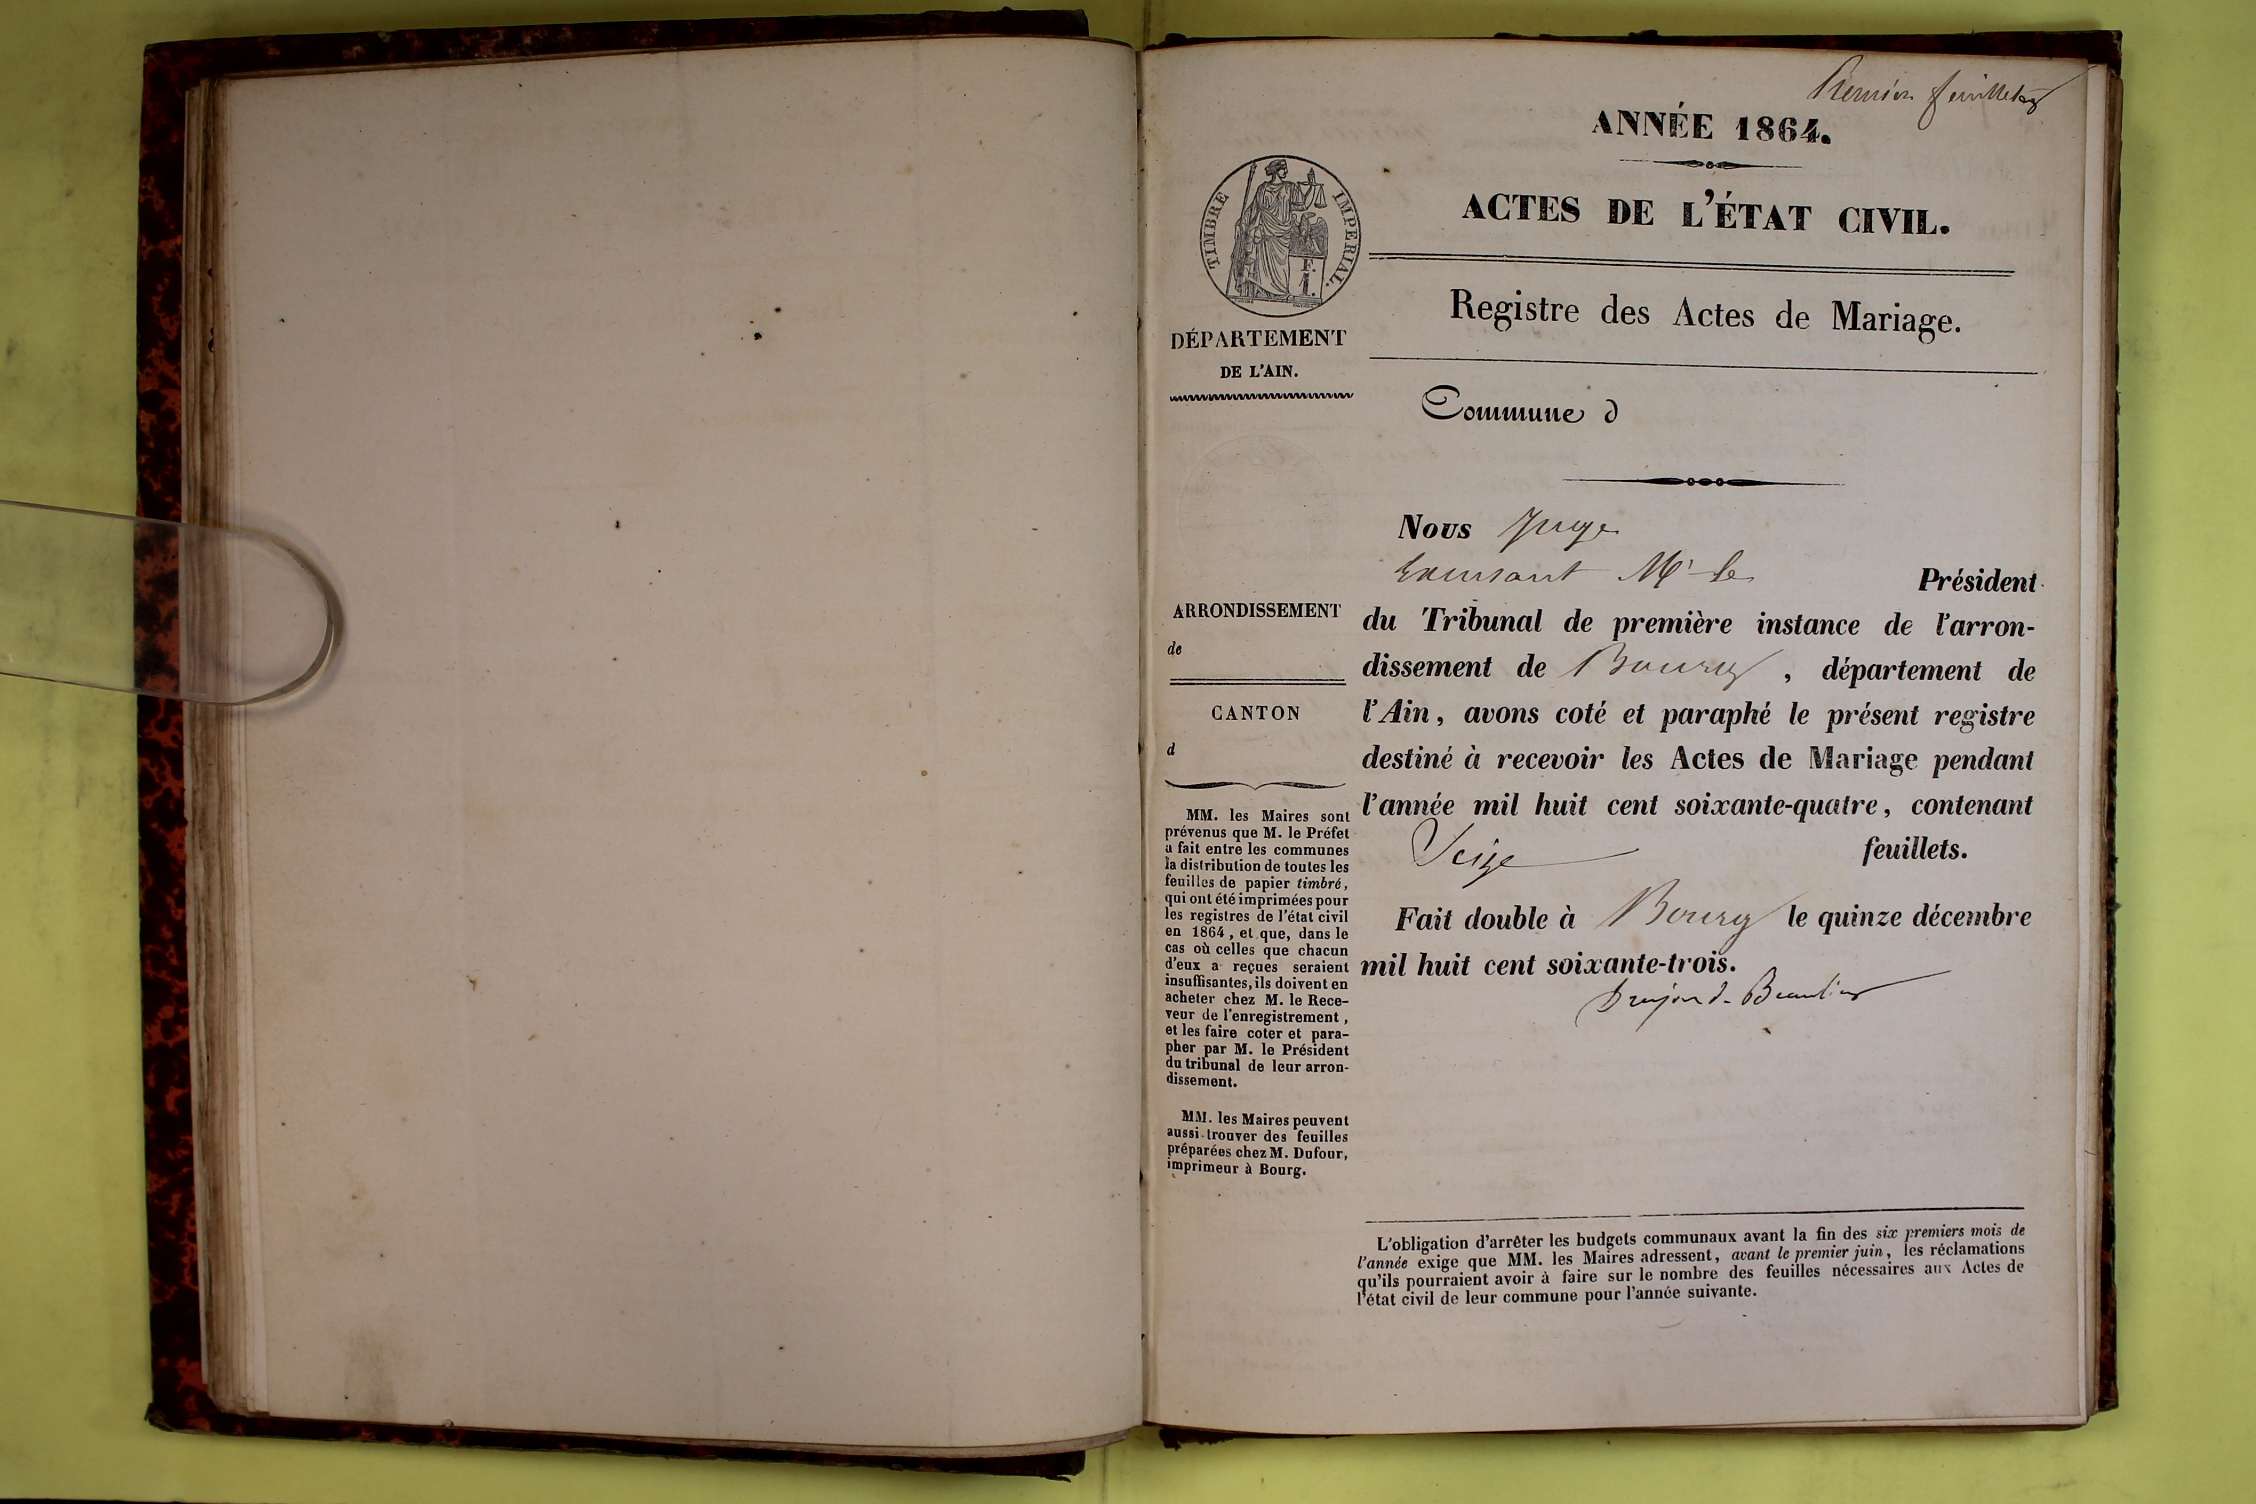 Premier feuillet
ANNÉE 1864.
ACTES DE L'ÉTAT CIVIL.
TIMBRE IMPERIAL.
F.
I.
Registre des Actes de Mariage.
DÉPARTEMENT
DE L'AIN.
Commune d
Nous Juge
Mr le Président
du Tribunal de première instance de l'arron-
dissement de Bourg, département de
l'Ain, avons coté et paraphé le présent registre
destiné à recevoir les Actes de Mariage pendant
l'année mil huit cent soixante-quatre, contenant
Seize feuillets.
Fait double à Bourg le quinze décembre
mil huit cent soixante-trois.
Drujon de Beaulieu
ARRONDISSEMENT
de
CANTON
d
MM. les Maires sont
prévenus que M. le Préfet
a fait entre les communes
la distribution de toutes les
feuilles de papier timbré,
qui ont été imprimées pour
les registres de l'état civil
en 1864, et que, dans le
cas où celles que chacun
d'eux a reçues seraient
insuffisantes, ils doivent en
acheter chez M. le Rece-
veur de l'enregistrement,
et les faire coter et para-
pher par M. le Président
du tribunal de leur arron-
dissement.
MM. les Maires peuvent
aussi trouver des feuilles
préparées chez M. Dufour,
imprimeur à Bourg.
L'obligation d'arrêter les budgets communaux avant la fin des six premiers mois de
l'année exige que MM. les Maires adressent, avant le premier juin, les réclamations
qu'ils pourraient avoir à faire sur le nombre des feuilles nécessaires aux Actes de
l'état civil de leur commune pour l'année suivante.